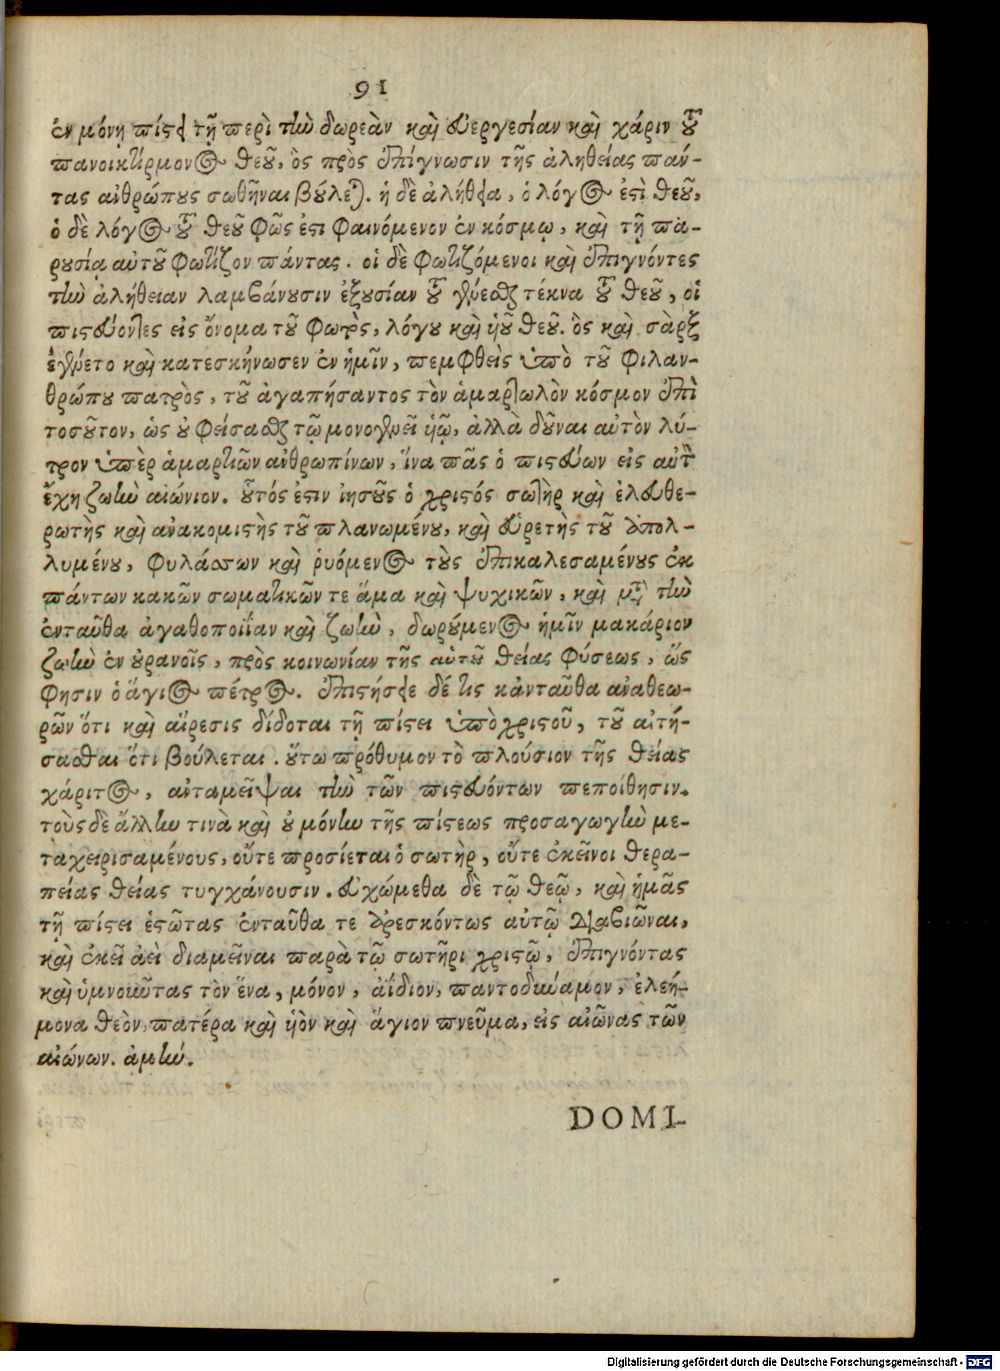 91
ἐν μόνῃ πίστει τῇ περὶ τὴν δωρεὰν καὶ εὐεργεσίαν καὶ χάριν τοῦ
πανοικτίρμονος θεοῦ, ὃς πρὸς ἐπίγνωσιν τῆς ἀληθείας πάν-
τας ἀνθρώπους σωθῆναι βούλεται. ἡ δὲ ἀλήθεια, ὁ λόγος ἐστὶ θεοῦ,
ὁ δὲ λόγος τοῦ θεοῦ φῶς ἐστι φαινόμενον ἐν κόσμῳ, καὶ τῇ πα-
ρουσίᾳ αὐτοῦ φωτίζον πάντας. οἱ δὲ φωτιζόμενοι καὶ ἐπιγνόντες
τὴν ἀλήθειαν λαμβάνουσιν ἐξουσίαν τοῦ γενέσθαι τέκνα τοῦ θεοῦ, οἱ
πιστεύοντες εἰς ὄνομα τοῦ φωτὸς, λόγου καὶ υἱοῦ θεοῦ. ὃς καὶ σὰρξ
ἐγένετο καὶ κατεσκήνωσεν ἐν ἡμῖν, πεμφθεὶς ὑπὸ τοῦ φιλαν-
θρώπου πατρὸς, τοῦ ἀγαπήσαντος τὸν ἁμαρτωλὸν κόσμον ἐπὶ
τοσοῦτον, ὡς οὐ φείσασθαι τῷ μονογενεῖ υἱῷ, ἀλλὰ δοῦναι αὐτὸν λύ-
τρον ὑπὲρ ἁμαρτιῶν ἀνθρωπίνων, ἵνα πᾶς ὁ πιστεύων εἰς αὐτὸν
ἔχῃ ζωὴν αἰώνιον. οὗτός ἐστιν ἰησοῦς ὁ χριστός σωτὴρ καὶ ἐλευθε-
ρωτὴς καὶ ἀνακομιστὴς τοῦ πλανωμένου, καὶ εὑρετὴς τοῦ ἀπολ-
λυμένου, φυλάσσων καὶ ῥυόμενος τοὺς ἐπικαλεσαμένους ἐκ
πάντων κακῶν σωματικῶν τε ἅμα καὶ ψυχικῶν, καὶ μετὰ τὴν
ἐνταῦθα ἀγαθοποιΐαν καὶ ζωὴν, δωρούμενος ἡμῖν μακάριον
ζωὴν ἐν οὐρανοῖς, πρὸς κοινωνίαν τῆς αὐτοῦ θείας φύσεως, ὥς
φησιν ὁ ἅγιος πέτρος. ἐπιστήσειε δέ τις κἀνταῦθα ἀναθεω-
ρῶν ὅτι καὶ αἵρεσις δίδοται τῇ πίστει ὑπὸ χριστοῦ, τοῦ αἰτή-
σασθαι ὅτι βούλεται. οὕτω πρόθυμον τὸ πλούσιον τῆς θείας
χάριτος, ἀνταμεῖψαι τὴν τῶν πιστευόντων πεποίθησιν.
τοὺς δὲ ἄλλην τινὰ καὶ οὐ μόνην τῆς πίστεως προσαγωγὴν με-
ταχειρισαμένους, οὔτε προσίεται ὁ σωτὴρ, οὔτε ἐκεῖνοι θερα-
πείας θείας τυγχάνουσιν. εὐχώμεθα δὲ τῷ θεῷ, καὶ ἡμᾶς
τῇ πίστει ἑστῶτας ἐνταῦθα τε ἀρεσκόντως αὐτῷ διαβιῶναι,
καὶ ἐκεῖ ἀεὶ διαμεῖναι παρὰ τῷ σωτῆρι χριστῷ, ἐπιγνόντας
καὶ ὑμνοιῶτας τὸν ἕνα, μόνον, ἀΐδιον, παντοδύναμον, ἐλεή-
μονα θεὸν, πατέρα καὶ υἱὸν καὶ ἅγιον πνεῦμα, εἰς αἰῶνας τῶν
αἰώνων. ἀμήν.
DOMI-
Digitalisierung gefördert durch die Deutsche Forschungsgemeinschaft - DFG